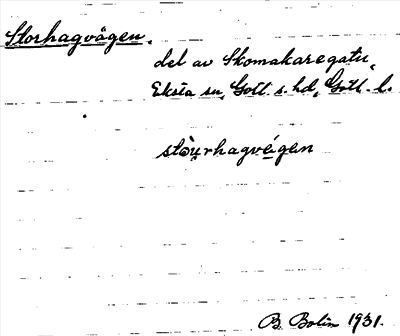 Storhagvägen.
del av Skomakaregatu,
Eksta sn, Gotl. s. hd, Gotl. l.
stòu̯rhagvé̜gen
B. Bolin 1931.